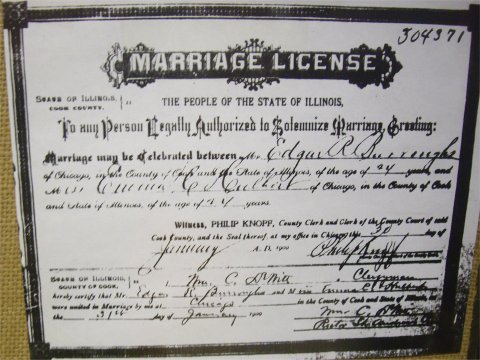 304371
MARRIAGE LICENSE
STATE OF ILLINOIS,
COOK COUNTY.
THE PEOPLE OF THE STATE OF ILLINOIS,
To any Person Legally Authorized to Solemnize Marriage, Greeting:
Marriage may be Celebrated between Mr. Edgar R. Burroughs
of Chicago, in the County of Cook and the State of Illinois, of the age of 24 years, and
Miss Emma C. Hulbert of Chicago, in the County of Cook
and State of Illinois, of the age of 24 years.
Witness, PHILIP KNOPF, County Clerk and Clerk of the County Court of said
Cook County, and the Seal thereof, at my office in Chicago this 30 day of
January A. D. 1900 Philip Knopf
STATE OF ILLINOIS,
COUNTY OF COOK. I, Wm. C. DeWitt Clergyman
hereby certify that Mr. Edgar R. Burroughs and Miss Emma C. Hulbert
were united in Marriage by me at Chicago in the County of Cook and State of Illinois, on
the 31st day of January 1900 Wm. C. DeWitt